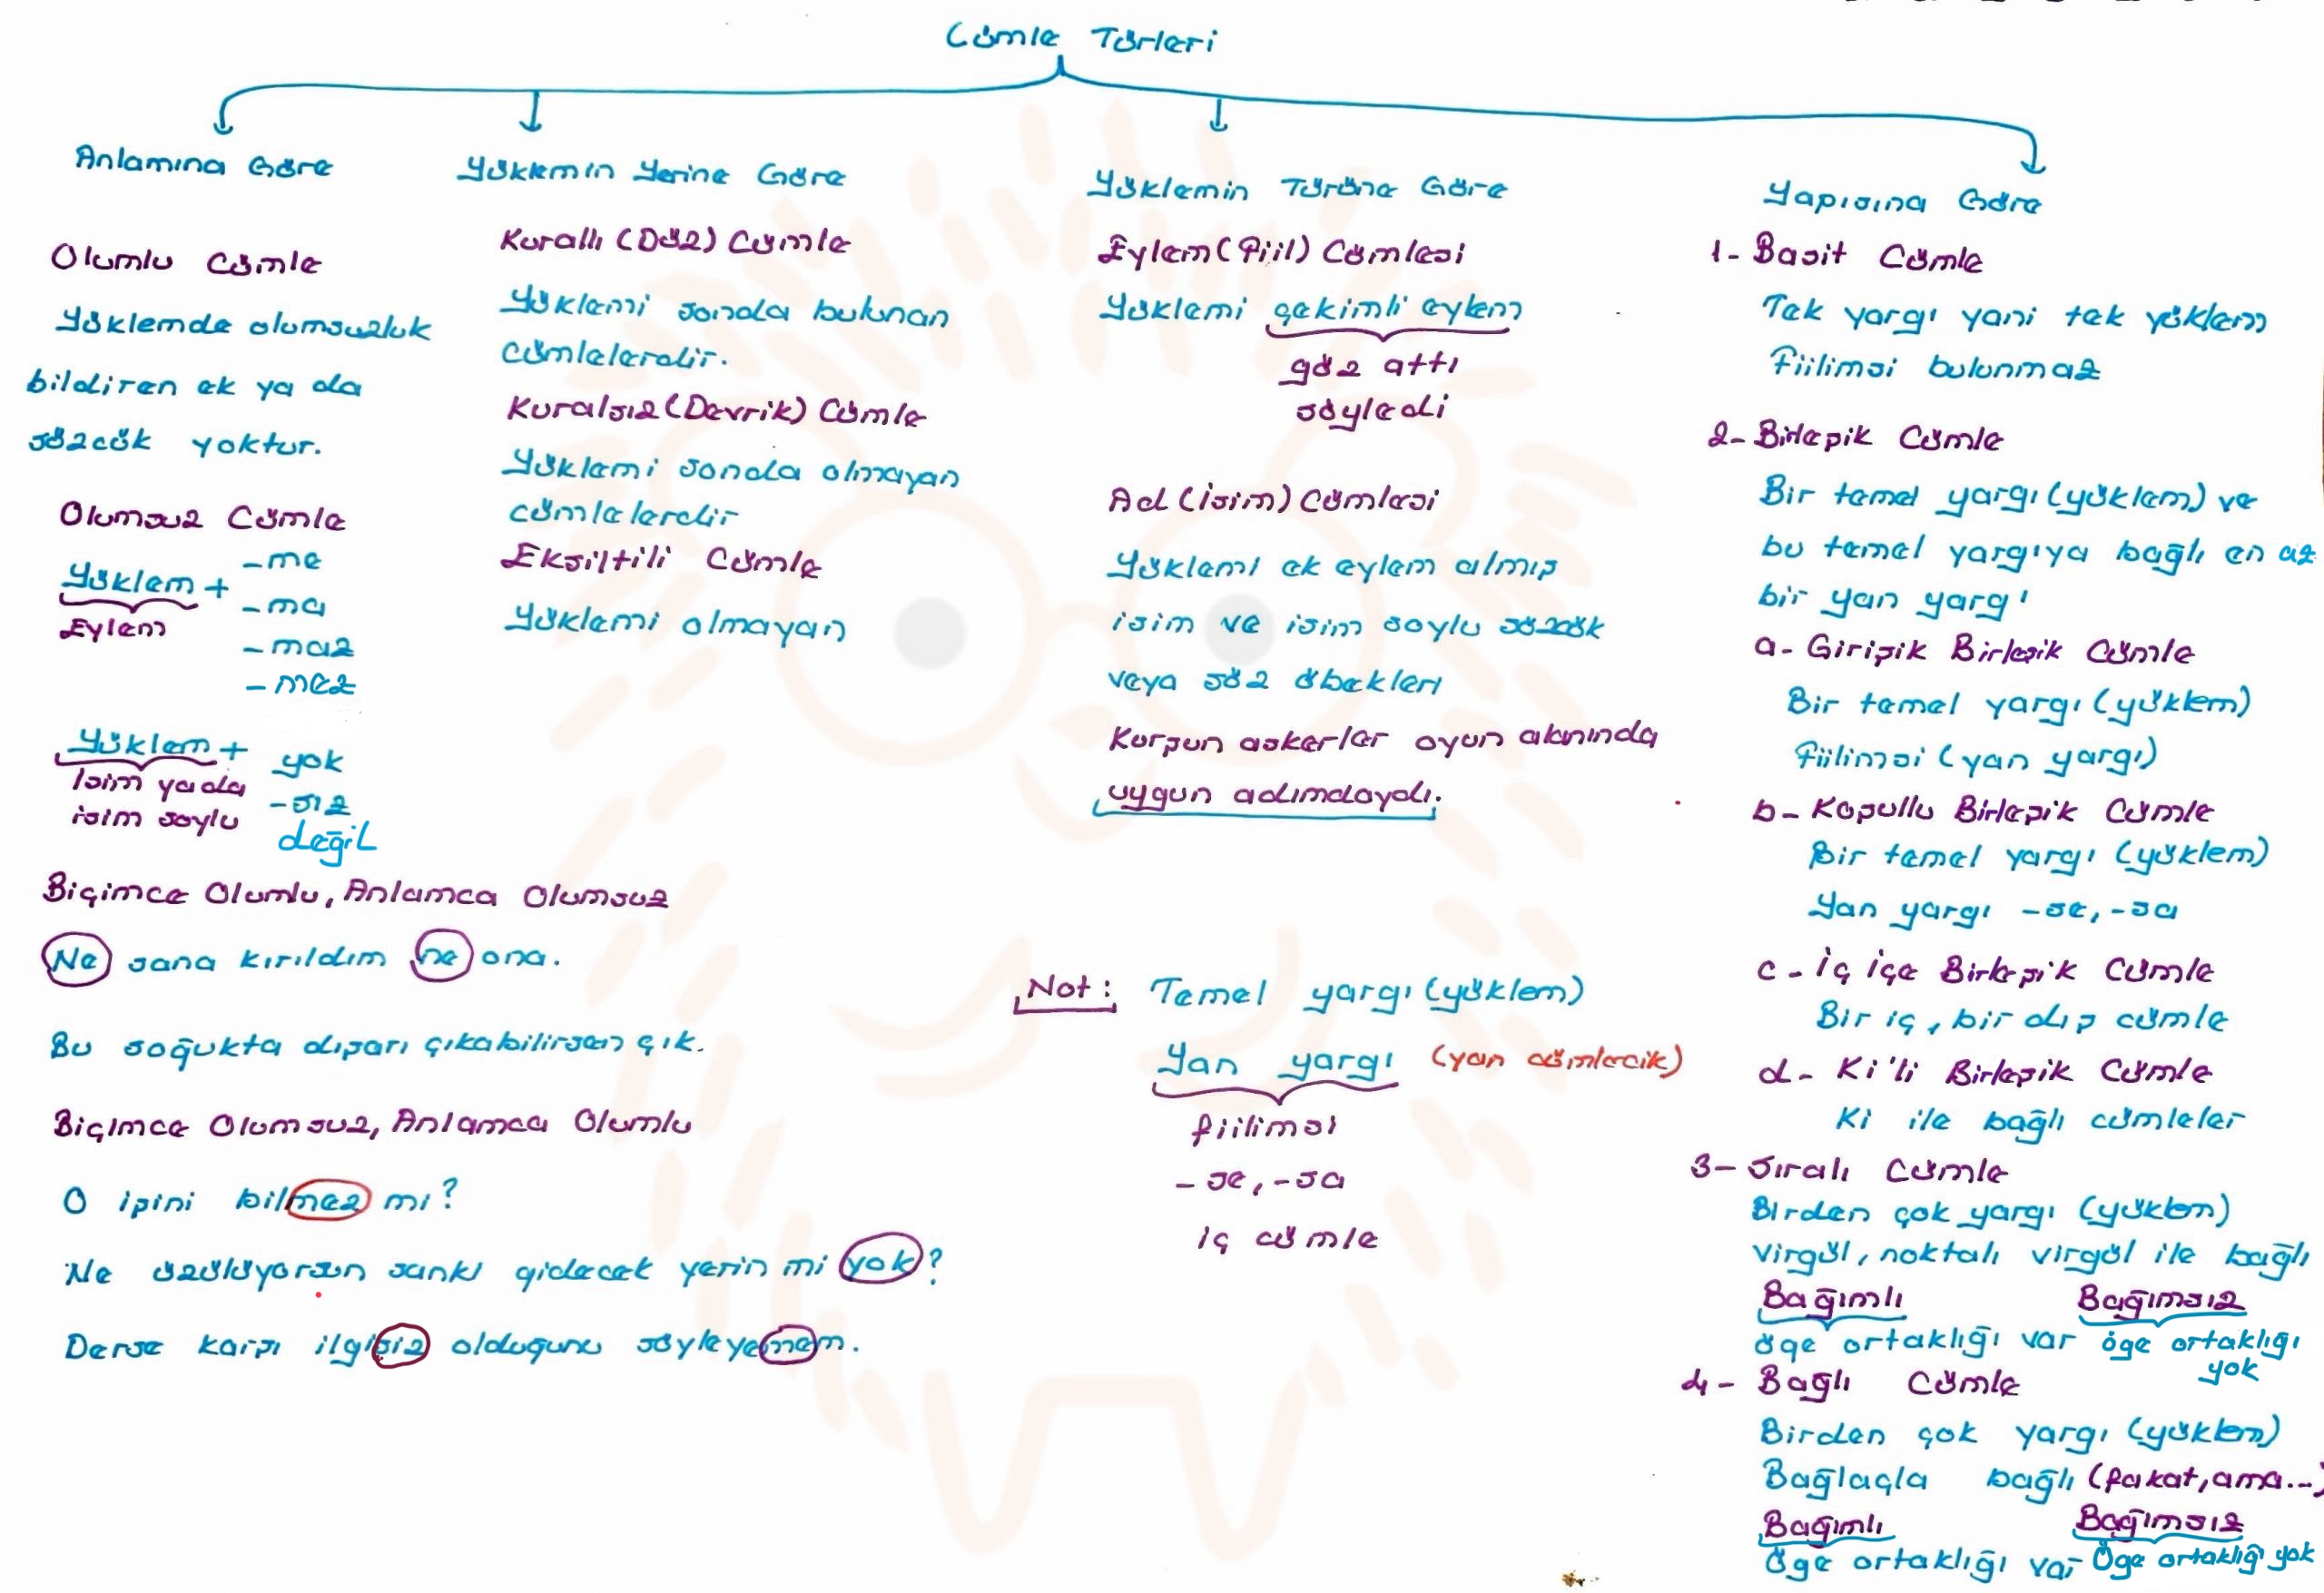 Cümle Türleri
Anlamına Göre
Olumlu Cümle
Yüklemde olumsuzluk
bildiren ek ya da
sözcük yoktur.
Olumsuz Cümle
Yüklem + -me
Eylem
-ma
-maz
-mez
Yüklem + yok
İsim ya da
-sız
isim soylu
değil
Biçimce Olumlu, Anlamca Olumsuz
Ne sana kırıldım ne ona.
Bu soğukta dışarı çıkabilirsen çık.
Biçimce Olumsuz, Anlamca Olumlu
O işini bilmez mi?
Ne üzülüyorsun sanki gidecek yerin mi yok?
Derse karşı ilgisiz olduğunu söyleyemem.
Yüklemin Yerine Göre
Kurallı (Düz) Cümle
Yüklemi sonda bulunan
cümlelerdir.
Kuralsız (Devrik) Cümle
Yüklemi sonda olmayan
cümlelerdir
Eksiltili Cümle
Yüklemi olmayan
Yüklemin Türüne Göre
Eylem (Fiil) Cümlesi
Yüklemi çekimli eylem
göz attı
söyledi
Ad (İsim) Cümlesi
Yüklemi ek eylem almış
isim ve isim soylu sözcük
veya söz öbekleri
Kurşun askerler oyun alanında
uygun adımdaydı.
Not: Temel yargı (yüklem)
Yan yargı (yan cümlecik)
fiilimsi
-se, -sa
iç cümle
Yapısına Göre
1- Basit Cümle
Tek yargı yani tek yüklem
Fiilimsi bulunmaz
2- Birleşik Cümle
Bir temel yargı (yüklem) ve
bu temel yargıya bağlı en az
bir yan yargı
a- Girişik Birleşik Cümle
Bir temel yargı (yüklem)
Fiilimsi (yan yargı)
b- Koşullu Birleşik Cümle
Bir temel yargı (yüklem)
Yan yargı -se, -sa
c- İç içe Birleşik Cümle
Bir iç, bir dış cümle
d- Ki'li Birleşik Cümle
Ki ile bağlı cümleler
3- Sıralı Cümle
Birden çok yargı (yüklem)
virgül, noktalı virgül ile bağlı
Bağımlı Bağımsız
öge ortaklığı var öge ortaklığı
yok
4- Bağlı Cümle
Birden çok yargı (yüklem)
Bağlaçla bağlı (fakat, ama...)
Bağımlı Bağımsız
Öge ortaklığı var Öge ortaklığı yok